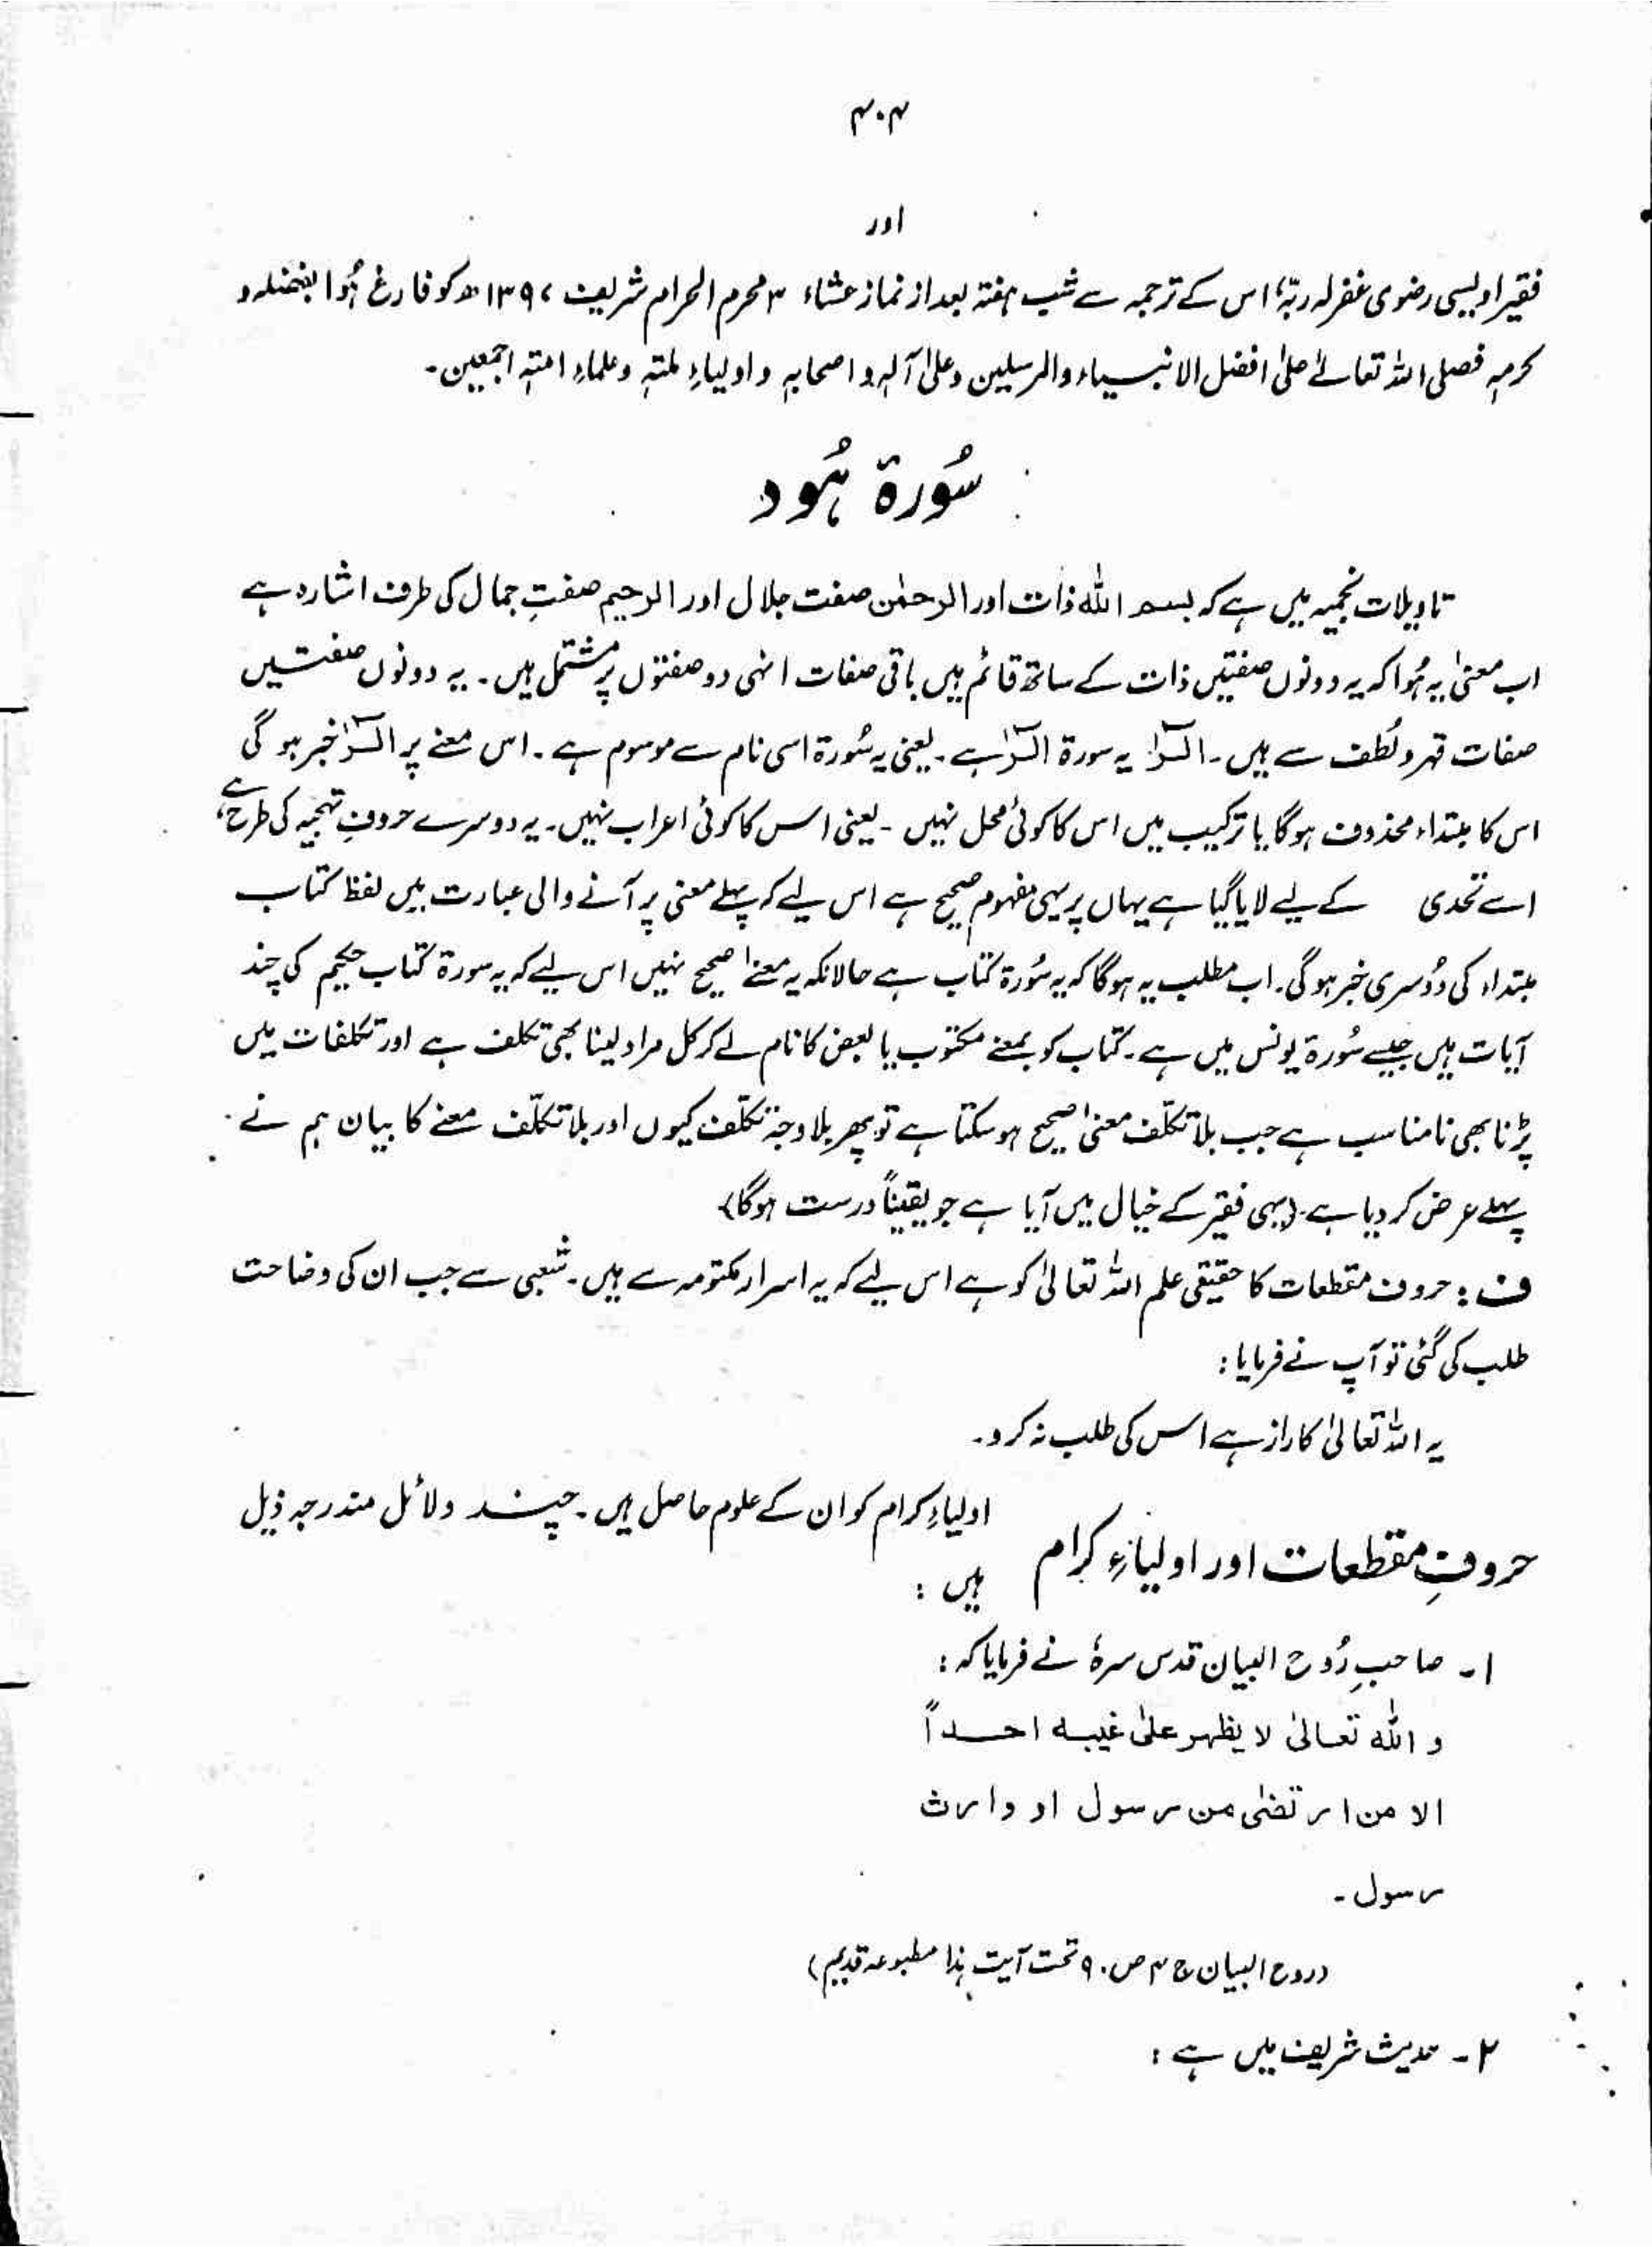 ۴۰۴
اور
فقیر اویسی رضوی غفرلہ ربہٗ، اس کے ترجمہ سے شب ہفتہ بعد از نماز عشاء ۳ محرم الحرام شریف ۱۳۹۷ھ کو فارغ ہُوا بفضلہ و
کرمہٖ فصلی اللہ تعالےٰ علیٰ افضل الانبیاء والمرسلین وعلیٰ آلہٖ و اصحابہٖ و اولیاءِ ملتہٖ وعلماءِ امتہٖ اجمعین۔
سُورۃ ہُود
تاویلات نجمیہ میں ہے کہ بسم اللہ ذات اور الرحمٰن صفت جلال اور الرحیم صفتِ جمال کی طرف اشارہ ہے
اب معنیٰ یہ ہُوا کہ یہ دونوں صفتیں ذات کے ساتھ قائم ہیں باقی صفات انہی دو صفتوں پر مشتمل ہیں۔ یہ دونوں صفتیں
صفات قہر و لُطف سے ہیں۔ الٓرٰ یہ سورۃ الٓرٰ ہے۔ یعنی یہ سُورۃ اسی نام سے موسوم ہے۔ اس معنے پر الٓرٰ خبر ہو گی
اس کا مبتداء محذوف ہوگا یا ترکیب میں اس کا کوئی محل نہیں ۔ یعنی اس کا کوئی اعراب نہیں۔ یہ دوسرے حروفِ تہجیہ کی طرح ہے،
اسے تحدی کے لیے لایا گیا ہے یہاں پر یہی مفہوم صحیح ہے اس لیے کہ پہلے معنی پر آنے والی عبارت میں لفظ کتاب
مبتداء کی دُوسری خبر ہوگی۔ اب مطلب یہ ہوگا کہ یہ سُورۃ کتاب ہے حالانکہ یہ معنےٰ صحیح نہیں اس لیے کہ یہ سورۃ کتاب حکیم کی چند
آیات ہیں جیسے سُورۃ یونس میں ہے۔ کتاب کو بمعنے مکتوب یا بعض کا نام لے کر کل مراد لینا بھی تکلف ہے اور تکلفات میں
پڑنا بھی نامناسب ہے جب بلا تکلّف معنیٰ صحیح ہو سکتا ہے تو پھر بلا وجہ تکلّف کیوں اور بلا تکلّف معنے کا بیان ہم نے
پہلے عرض کر دیا ہے۔ (یہی فقیر کے خیال میں آیا ہے جو یقیناً درست ہوگا)
ف : حروف مقطعات کا حقیقی علم اللہ تعالیٰ کو ہے اس لیے کہ یہ اسرار مکتومہ سے ہیں۔ شعبی سے جب ان کی وضاحت
طلب کی گئی تو آپ نے فرمایا :
یہ اللہ تعالیٰ کا راز ہے اس کی طلب نہ کرو۔
حروفِ مقطعات اور اولیاءِ کرام اولیاءِ کرام کو ان کے علوم حاصل ہیں۔ چند دلائل مندرجہ ذیل
ہیں :
۱۔ صاحبِ رُوح البیان قدس سرہٗ نے فرمایا کہ :
و اللہ تعالیٰ لا یظہر علیٰ غیبہ احداً
الا من ارتضیٰ من رسول او وارث
رسول ۔
(روح البیان ج ۴ ص ۹۰ تحت آیت ہٰذا مطبوعہ قدیم)
۲۔ حدیث شریف میں ہے :